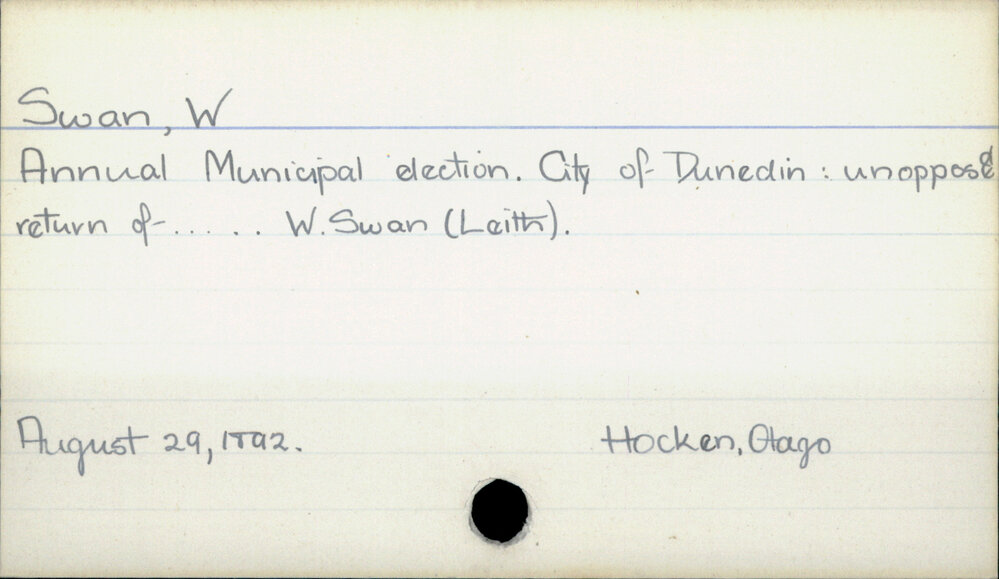 Swan, W
Annual Municipal election. City of Dunedin : unopposed
return of ..... W. Swan (Leith).
August 29, 1892.
Hocken, Otago